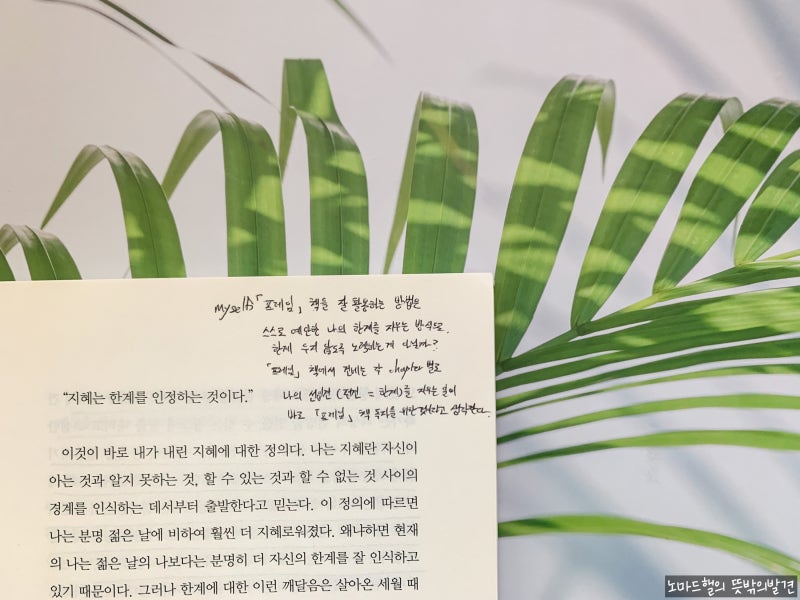 myself)「프레임」 책을 잘 활용하는 방법은
스스로 예단한 나의 한계를 지우는 방식으로.
한계 두지 않도록 노력하는게 아닐까?
「프레임」 책에서 건네는 각 chapter 별로
나의 선입견 (편견 = 한계)를 지우는 일이
바로 「프레임」 책 독자를 위한 것이라고 생각한다.
“지혜는 한계를 인정하는 것이다.”
이것이 바로 내가 내린 지혜에 대한 정의다. 나는 지혜란 자신이
아는 것과 알지 못하는 것, 할 수 있는 것과 할 수 없는 것 사이의
경계를 인식하는 데서부터 출발한다고 믿는다. 이 정의에 따르면
나는 분명 젊은 날에 비하여 훨씬 더 지혜로워졌다. 왜냐하면 현재
의 나는 젊은 날의 나보다는 분명히 더 자신의 한계를 잘 인식하고
있기 때문이다. 그러나 한계에 대한 이런 깨달음은 살아온 세월 때
노마드헬의 뜻밖의발견